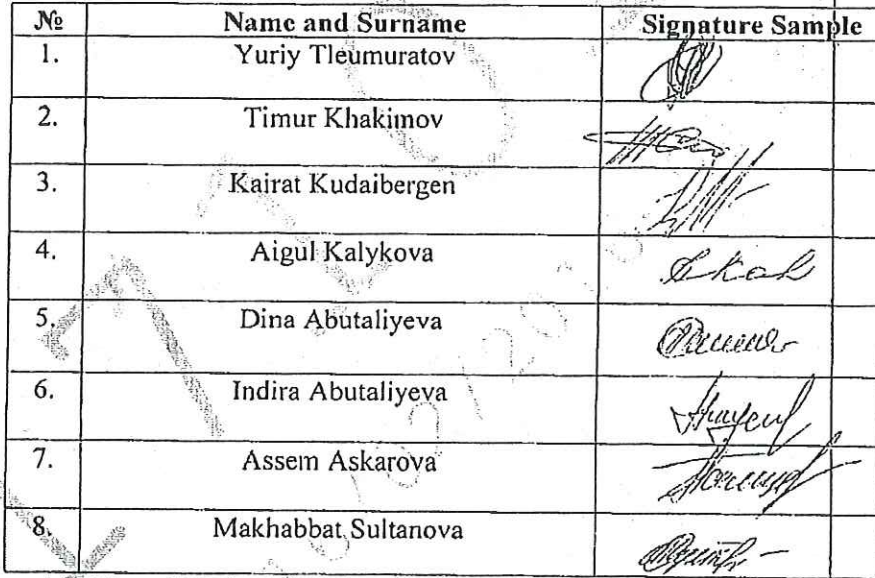 № Name and Surname Signature Sample
1. Yuriy Tleumuratov
2. Timur Khakimov
3. Kairat Kudaibergen
4. Aigul Kalykova
5. Dina Abutaliyeva
6. Indira Abutaliyeva
7. Assem Askarova
8. Makhabbat Sultanova